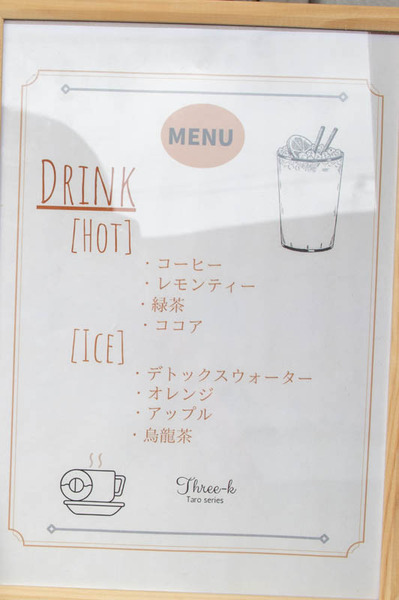 MENU
DRINK
[HOT]
・コーヒー
・レモンティー
・緑茶
・ココア
[ICE]
・デトックスウォーター
・オレンジ
・アップル
・烏龍茶
Three-k
Taro series